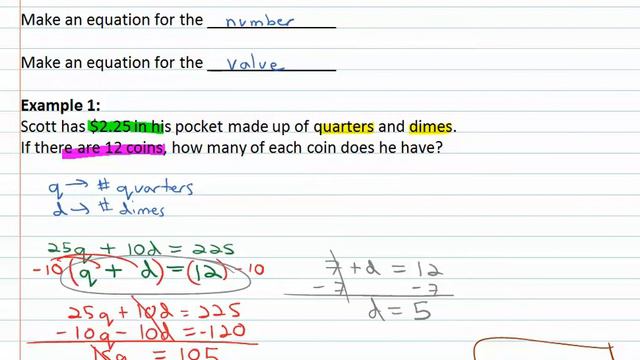 Make an equation for the number
Make an equation for the value
Example 1:
Scott has $2.25 in his pocket made up of quarters and dimes.
If there are 12 coins, how many of each coin does he have?
q → # quarters
d → # dimes
25q + 10d = 225
-10(q + d) = (12) -10
25q + 10d = 225
-10q - 10d = -120
15q = 105
7 + d = 12
-7 -7
d = 5